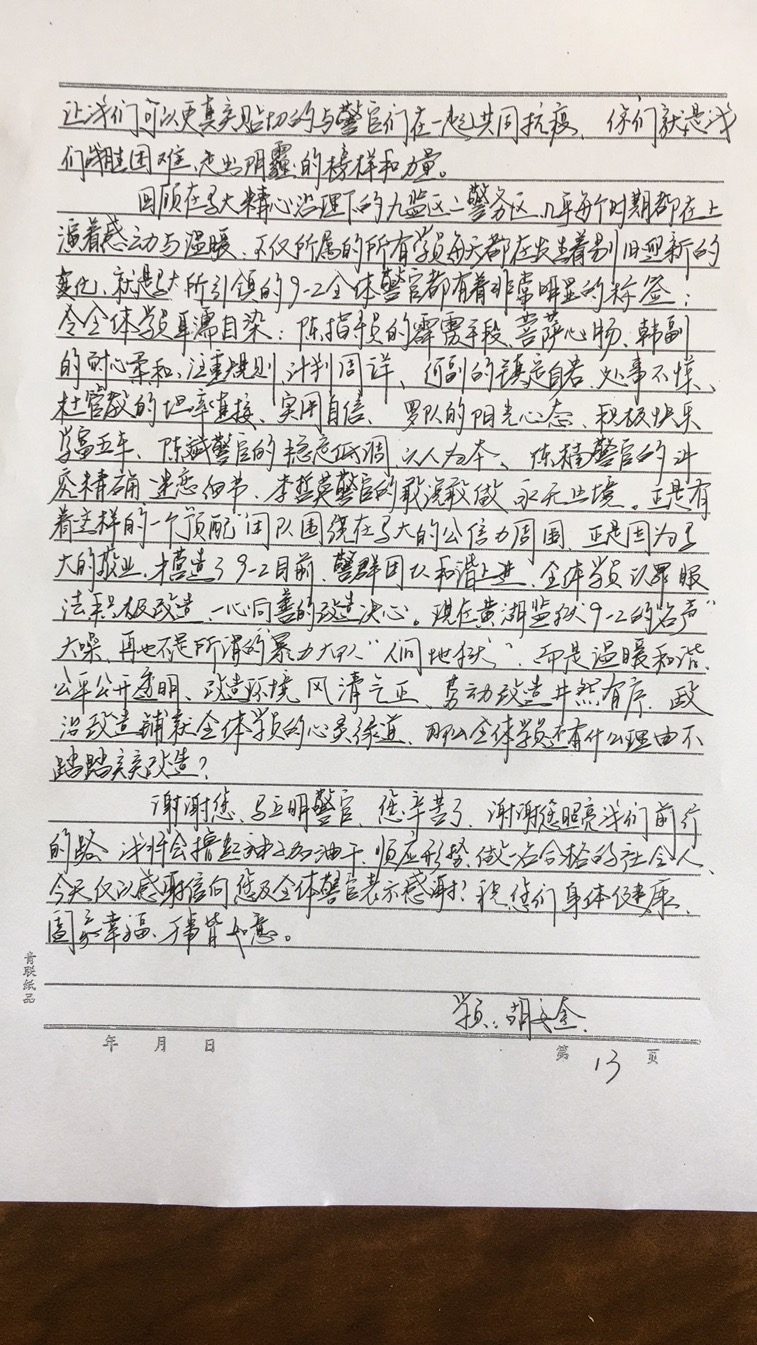 让我们可以更真实贴切的与警官们在一起共同抗疫、你们就是我
们战胜困难、走出阴霾的榜样和力量。
回顾在马大精心治理下的九监区二警务区、几乎每个时期都在上
演着感动与温暖、不仅所属的所有学员每天都在发生着别旧迎新的
变化、就是马大所引领的9-2全体警官都有着非常明显的标签；
令全体学员耳濡目染：陈指导员的霹雳手段、菩萨心肠、韩副
的耐心柔和、注重规则、计划周详、何副的镇定自若、处事不慌、
杜管教的坦率直接、实用自信、罗队的阳光心态、积极快乐
学富五车、陈斌警官的稳定低调、以人为本、陈楠警官的
精确、迷恋细节、李哲英警官的敢说敢做、永无止境。正是有
着这样的一个"顶配"团队围绕在马大的公信力周围、正是因为马
大的敬业、才营造了9-2目前、警群团队和谐上进、全体学员认罪服
法积极改造、一心向善的改造决心。现在黄湖监狱9-2的名声"
大噪、再也不是所谓的"暴力大队""人间地狱"、而是温暖和谐、
公平公开透明、改造环境风清气正、劳动改造井然有序、政
治改造铺就全体学员的心灵绿道、那么全体学员还有什么理由不
踏踏实实改造？
谢谢您、马立明警官、您辛苦了、谢谢您照亮我们前行
的路、我将会撸起袖子加油干、顺应形势、做一名合格的社会人、
今天仅以感谢信向您及全体警官表示感谢！祝您们身体健康、
阖家幸福、万事皆如意。
学员：胡
肯联纸品
年 月 日
第 13 页